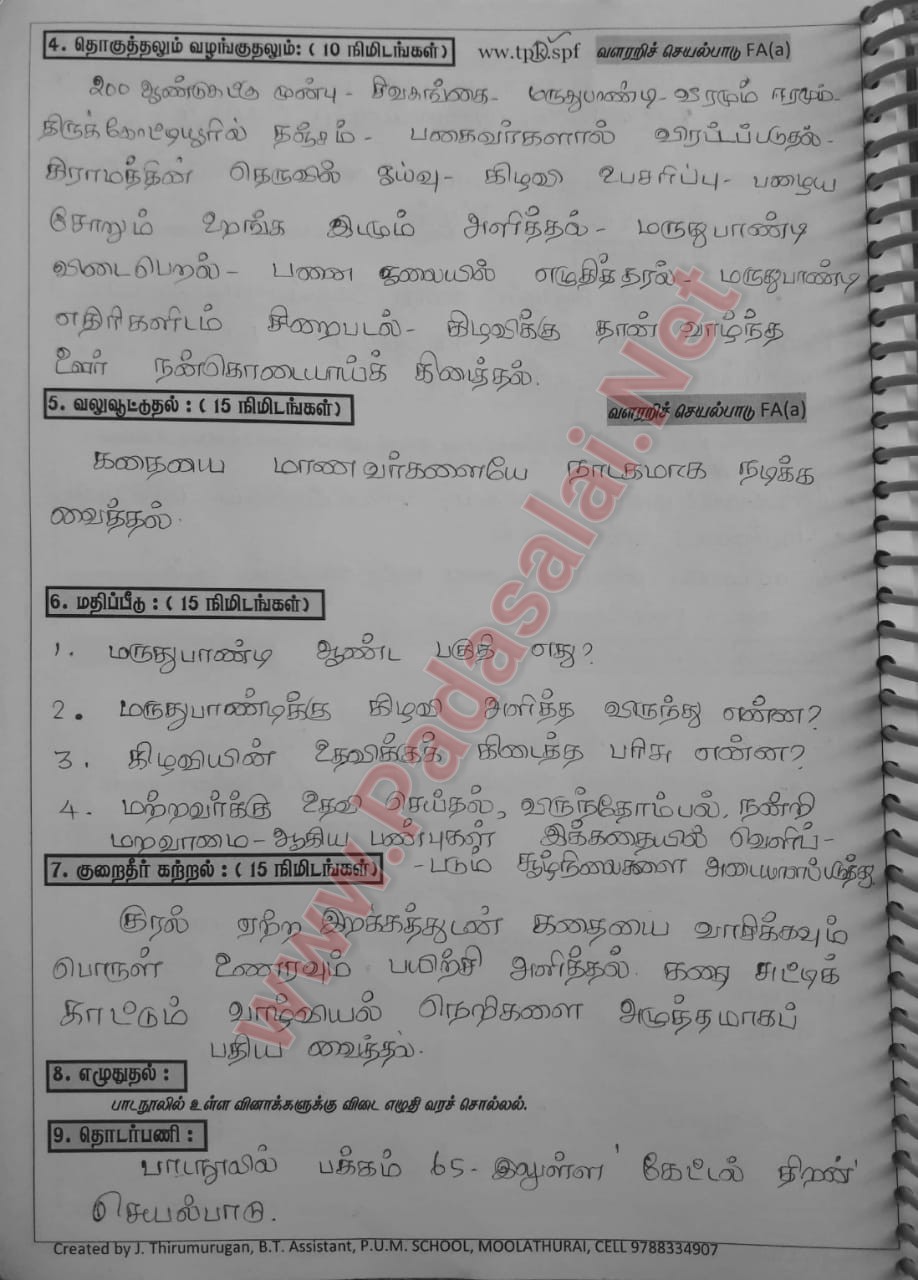 4. தொகுத்தலும் வழங்குதலும்: ( 10 நிமிடங்கள்) ww.tpk.spf வளரறிச் செயல்பாடு FA(a)
200 ஆண்டுகட்கு முன்பு - சிவகங்கை - மருதுபாண்டி - வீரமும் ஈரமும் -
திருக்கோட்டியூரில் தஞ்சம் - பகைவர்களால் விரட்டப்படுதல் -
கிராமத்தின் தெருவில் ஓய்வு - கிழவி உபசரிப்பு - பழைய
சோறும் உறங்க இடமும் அளித்தல் - மருதுபாண்டி
விடைபெறல் - பனை ஓலையில் எழுதித்தரல் - மருதுபாண்டி
எதிரிகளிடம் சிறைபடல் - கிழவிக்கு தான் வாழ்ந்த
ஊர் நன்கொடையாய்க் கிடைத்தல்.
5. வலுவூட்டுதல் : ( 15 நிமிடங்கள்) வளரறிச் செயல்பாடு FA(a)
கதையை மாணவர்களையே நாடகமாக நடிக்க
வைத்தல்.
6. மதிப்பீடு : ( 15 நிமிடங்கள்)
1. மருதுபாண்டி ஆண்ட பகுதி எது?
2. மருதுபாண்டிக்கு கிழவி அளித்த விருந்து என்ன?
3. கிழவியின் உதவிக்குக் கிடைத்த பரிசு என்ன?
4. மற்றவர்க்கு உதவி செய்தல், விருந்தோம்பல், நன்றி
மறவாமை - ஆகிய பண்புகள் இக்கதையில் வெளிப் -
7. குறைதீர் கற்றல் : ( 15 நிமிடங்கள்) - படும் சூழ்நிலைகளை அடையாளப்படுத்து
குரல் ஏற்ற இறக்கத்துடன் கதையை வாசிக்கவும்
பொருள் உணரவும் பயிற்சி அளித்தல். கதை சுட்டிக்
காட்டும் வாழ்வியல் நெறிகளை அழுத்தமாகப்
பதிய வைத்தல்.
8. எழுதுதல் :
பாடநூலில் உள்ள வினாக்களுக்கு விடை எழுதி வரச் சொல்லல்.
9. தொடர்பணி :
பாடநூலில் பக்கம் 65 - இலுள்ள 'கேட்டல் திறன்'
செயல்பாடு.
Created by J. Thirumurugan, B.T. Assistant, P.U.M. SCHOOL, MOOLATHURAI, CELL 9788334907
www.Padasalai.Net